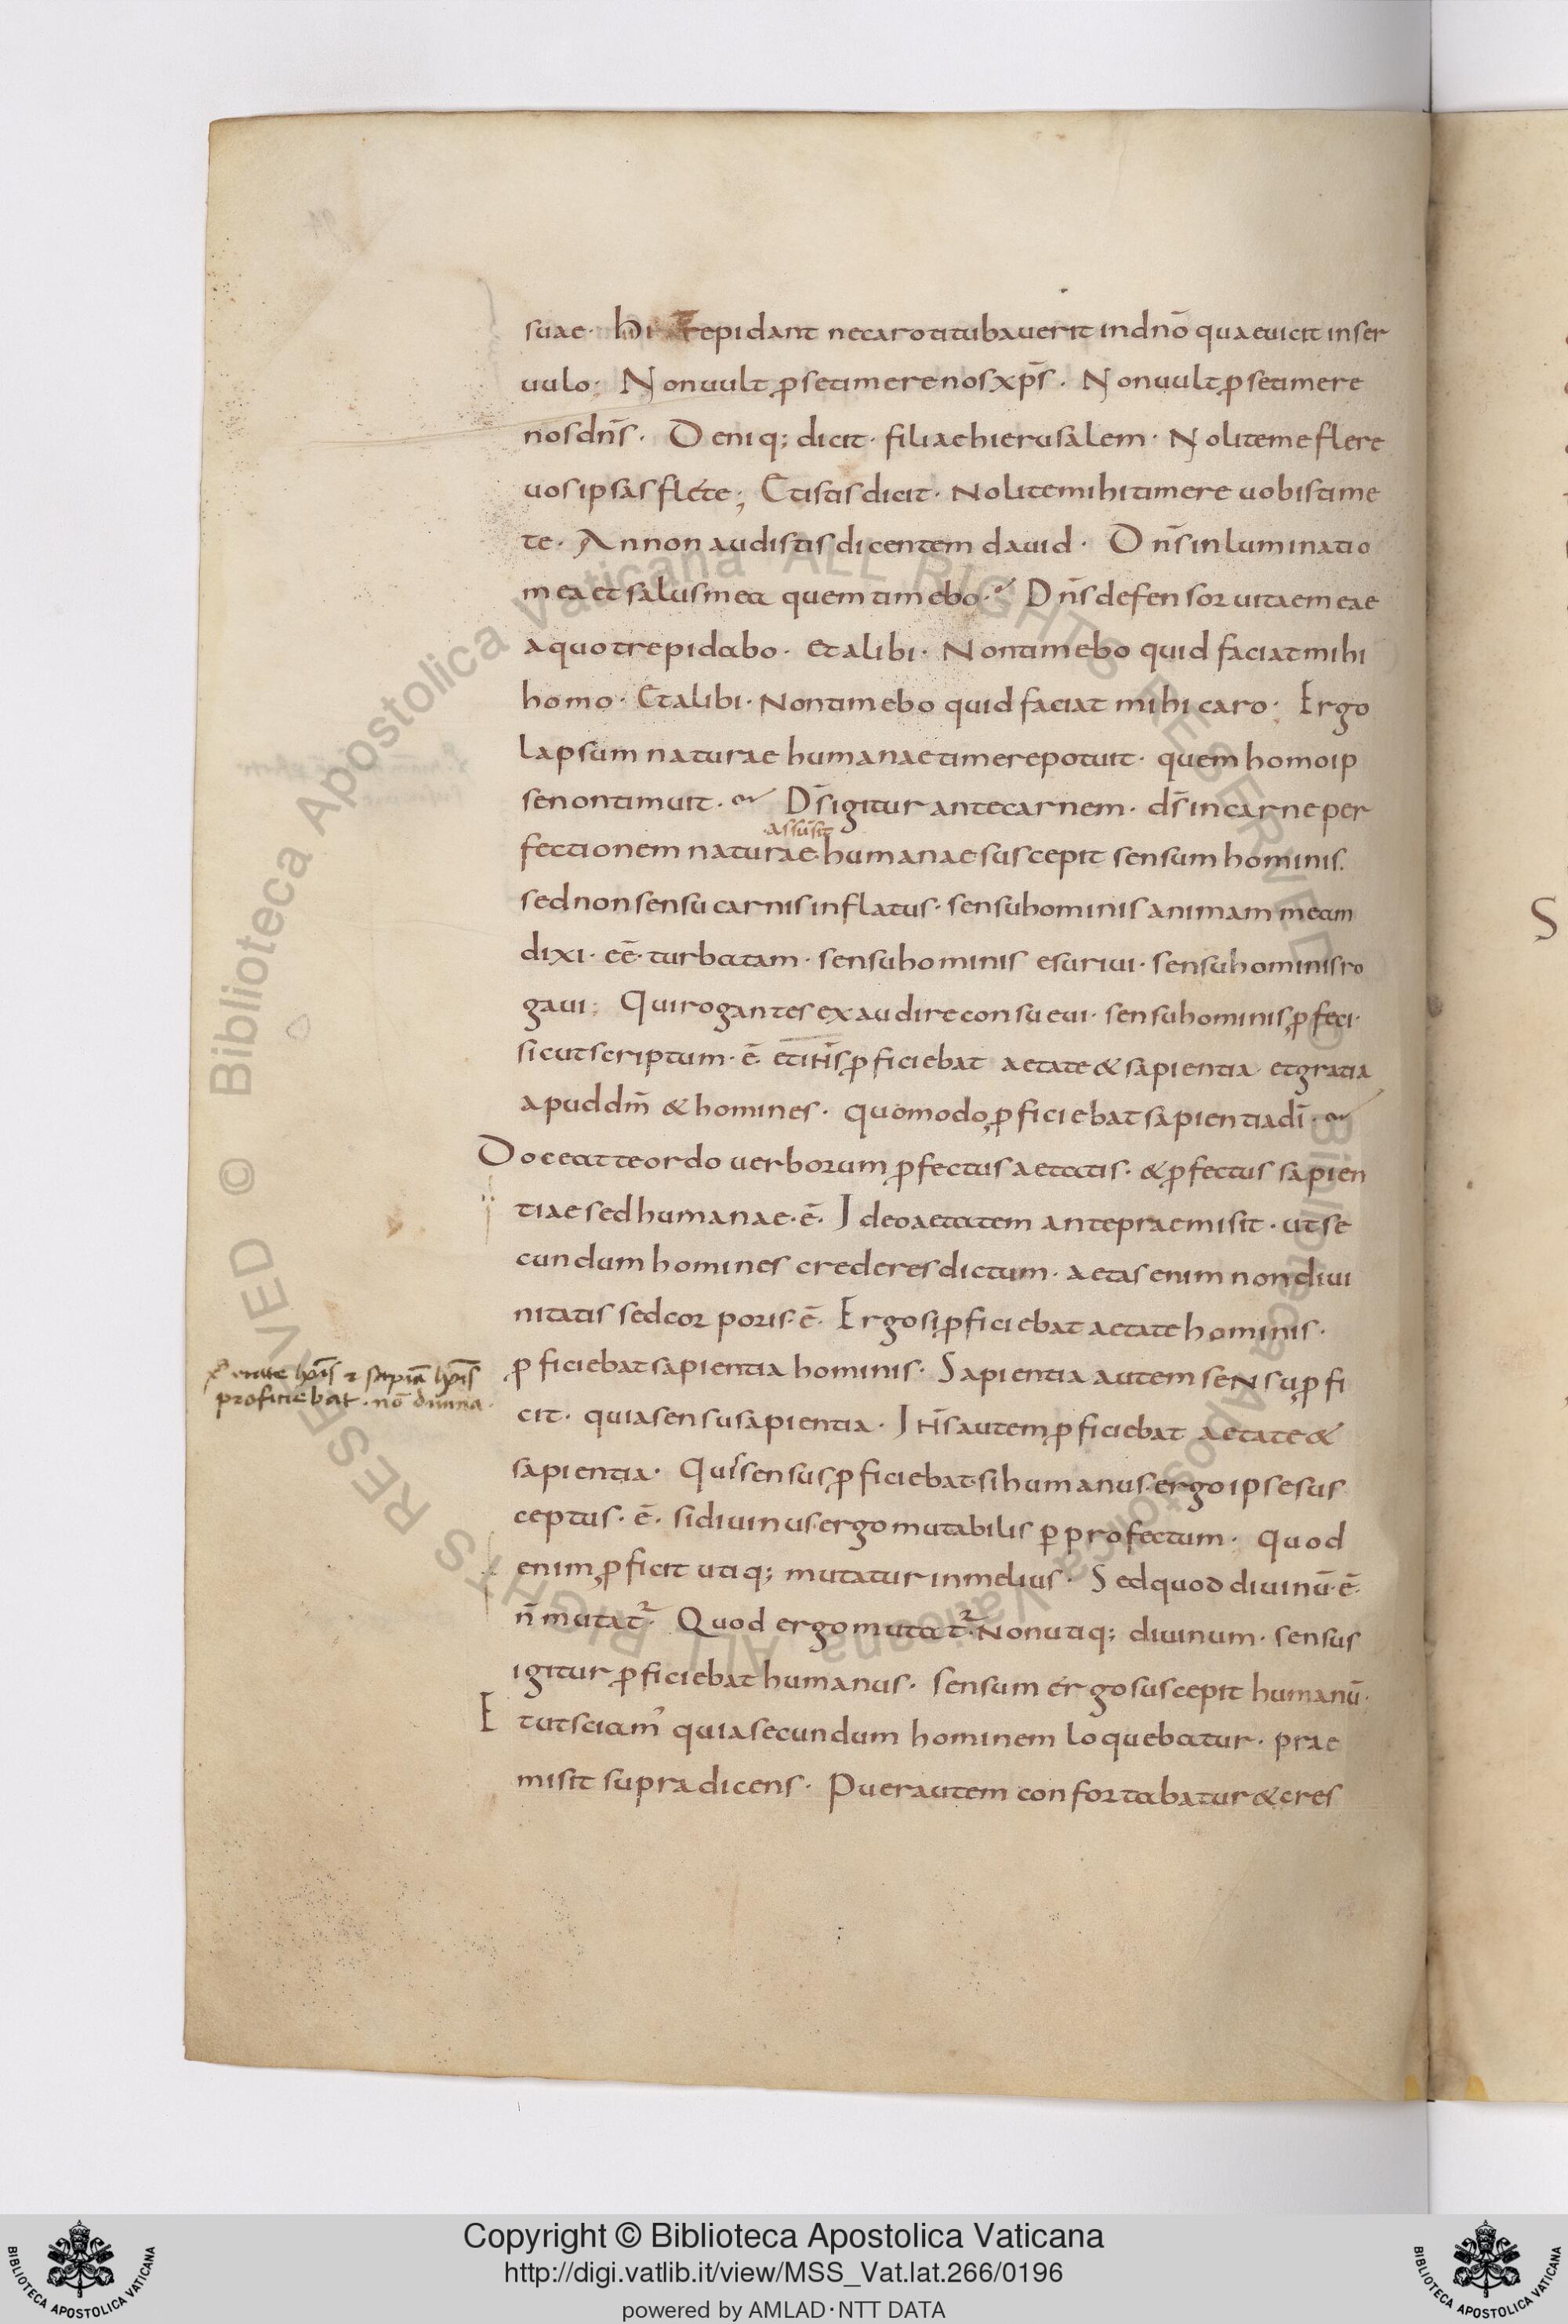 suae· hi trepidant ne caro titubauerit in dn̄o quae uicit in ser
uulo· Non uult ꝓ se timere nos xp̄s· Non uult ꝓ se timere
nos dn̄s· Deniq; dicit· filiae hierusalem· Nolite me flere
uos ipsas flete; Et istis dicit· Nolite mihi timere uobis time
te· An non audistis dicentem dauid· Dn̄s inluminatio
mea et salus mea quem timebo· Dn̄s defensor uitae meae
a quo trepidabo· et alibi· Non timebo quid faciat mihi
homo· Et alibi· Non timebo quid faciat mihi caro· Ergo
lapsum naturae humanae timere potuit· quem homo ip
se non timuit· Ds̄ igitur ante carnem· ds̄ in carne per
·assūsit
fectionem naturae humanae suscepit sensum hominis.
sed non sensu carnis inflatus· sensu hominis animam meam
dixi· eē· turbatam· sensu hominis esuriui· sensu hominis ro
gaui; Qui rogantes exaudire consueui· sensu hominis ꝓfeci·
sicut scriptum· ē· et ih̄s ꝓficiebat aetate & sapientia et gratia
apud dm̄ & homines· quomodo ꝓficiebat sapientia dī·
Doceat te ordo uerborum ꝓfectus aetatis· & ꝓfectus sapien
tiae sed humanae· ē· Ideo aetatem ante praemisit· ut se
cundum homines crederes dictum· aetas enim non diui
nitatis sed corporis· ē· Ergo si ꝓficiebat aetate hominis·
ꝓficiebat sapientia hominis· Sapientia autem seNsu ꝓfi
cit· quia sensu sapientia· Ih̄s autem ꝓficiebat aetate &
sapientia· Qui sensus ꝓficiebat· si humanus· ergo ipse sus
ceptus· ē· si diuinus· ergo mutabilis ꝑ profectum· Quod
enim ꝓficit utiq; mutatur in melius· Sed quod diuinū· ē·
n̄ mutat᷑· Quod ergo mutat᷑· Non utiq; diuinum· sensus
igitur ꝓficiebat humanus· sensum ergo suscepit humanū·
Et ut sciam' quia secundum hominem loquebatur· prae
misit supra dicens· Puer autem confortabatur & cres
etate hōis ⁊ sapiā hōis
proficiebat· nō diuina·
S
Copyright © Biblioteca Apostolica Vaticana
http://digi.vatlib.it/view/MSS_Vat.lat.266/0196
powered by AMLAD·NTT DATA
BIBLIOTECA APOSTOLICA VATICANA
BIBLIOTECA APOSTOLICA VATICANA
© Biblioteca Apostolica Vaticana ALL RIGHTS RESERVED
© Biblioteca Apostolica Vaticana ALL RIGHTS RESERVED